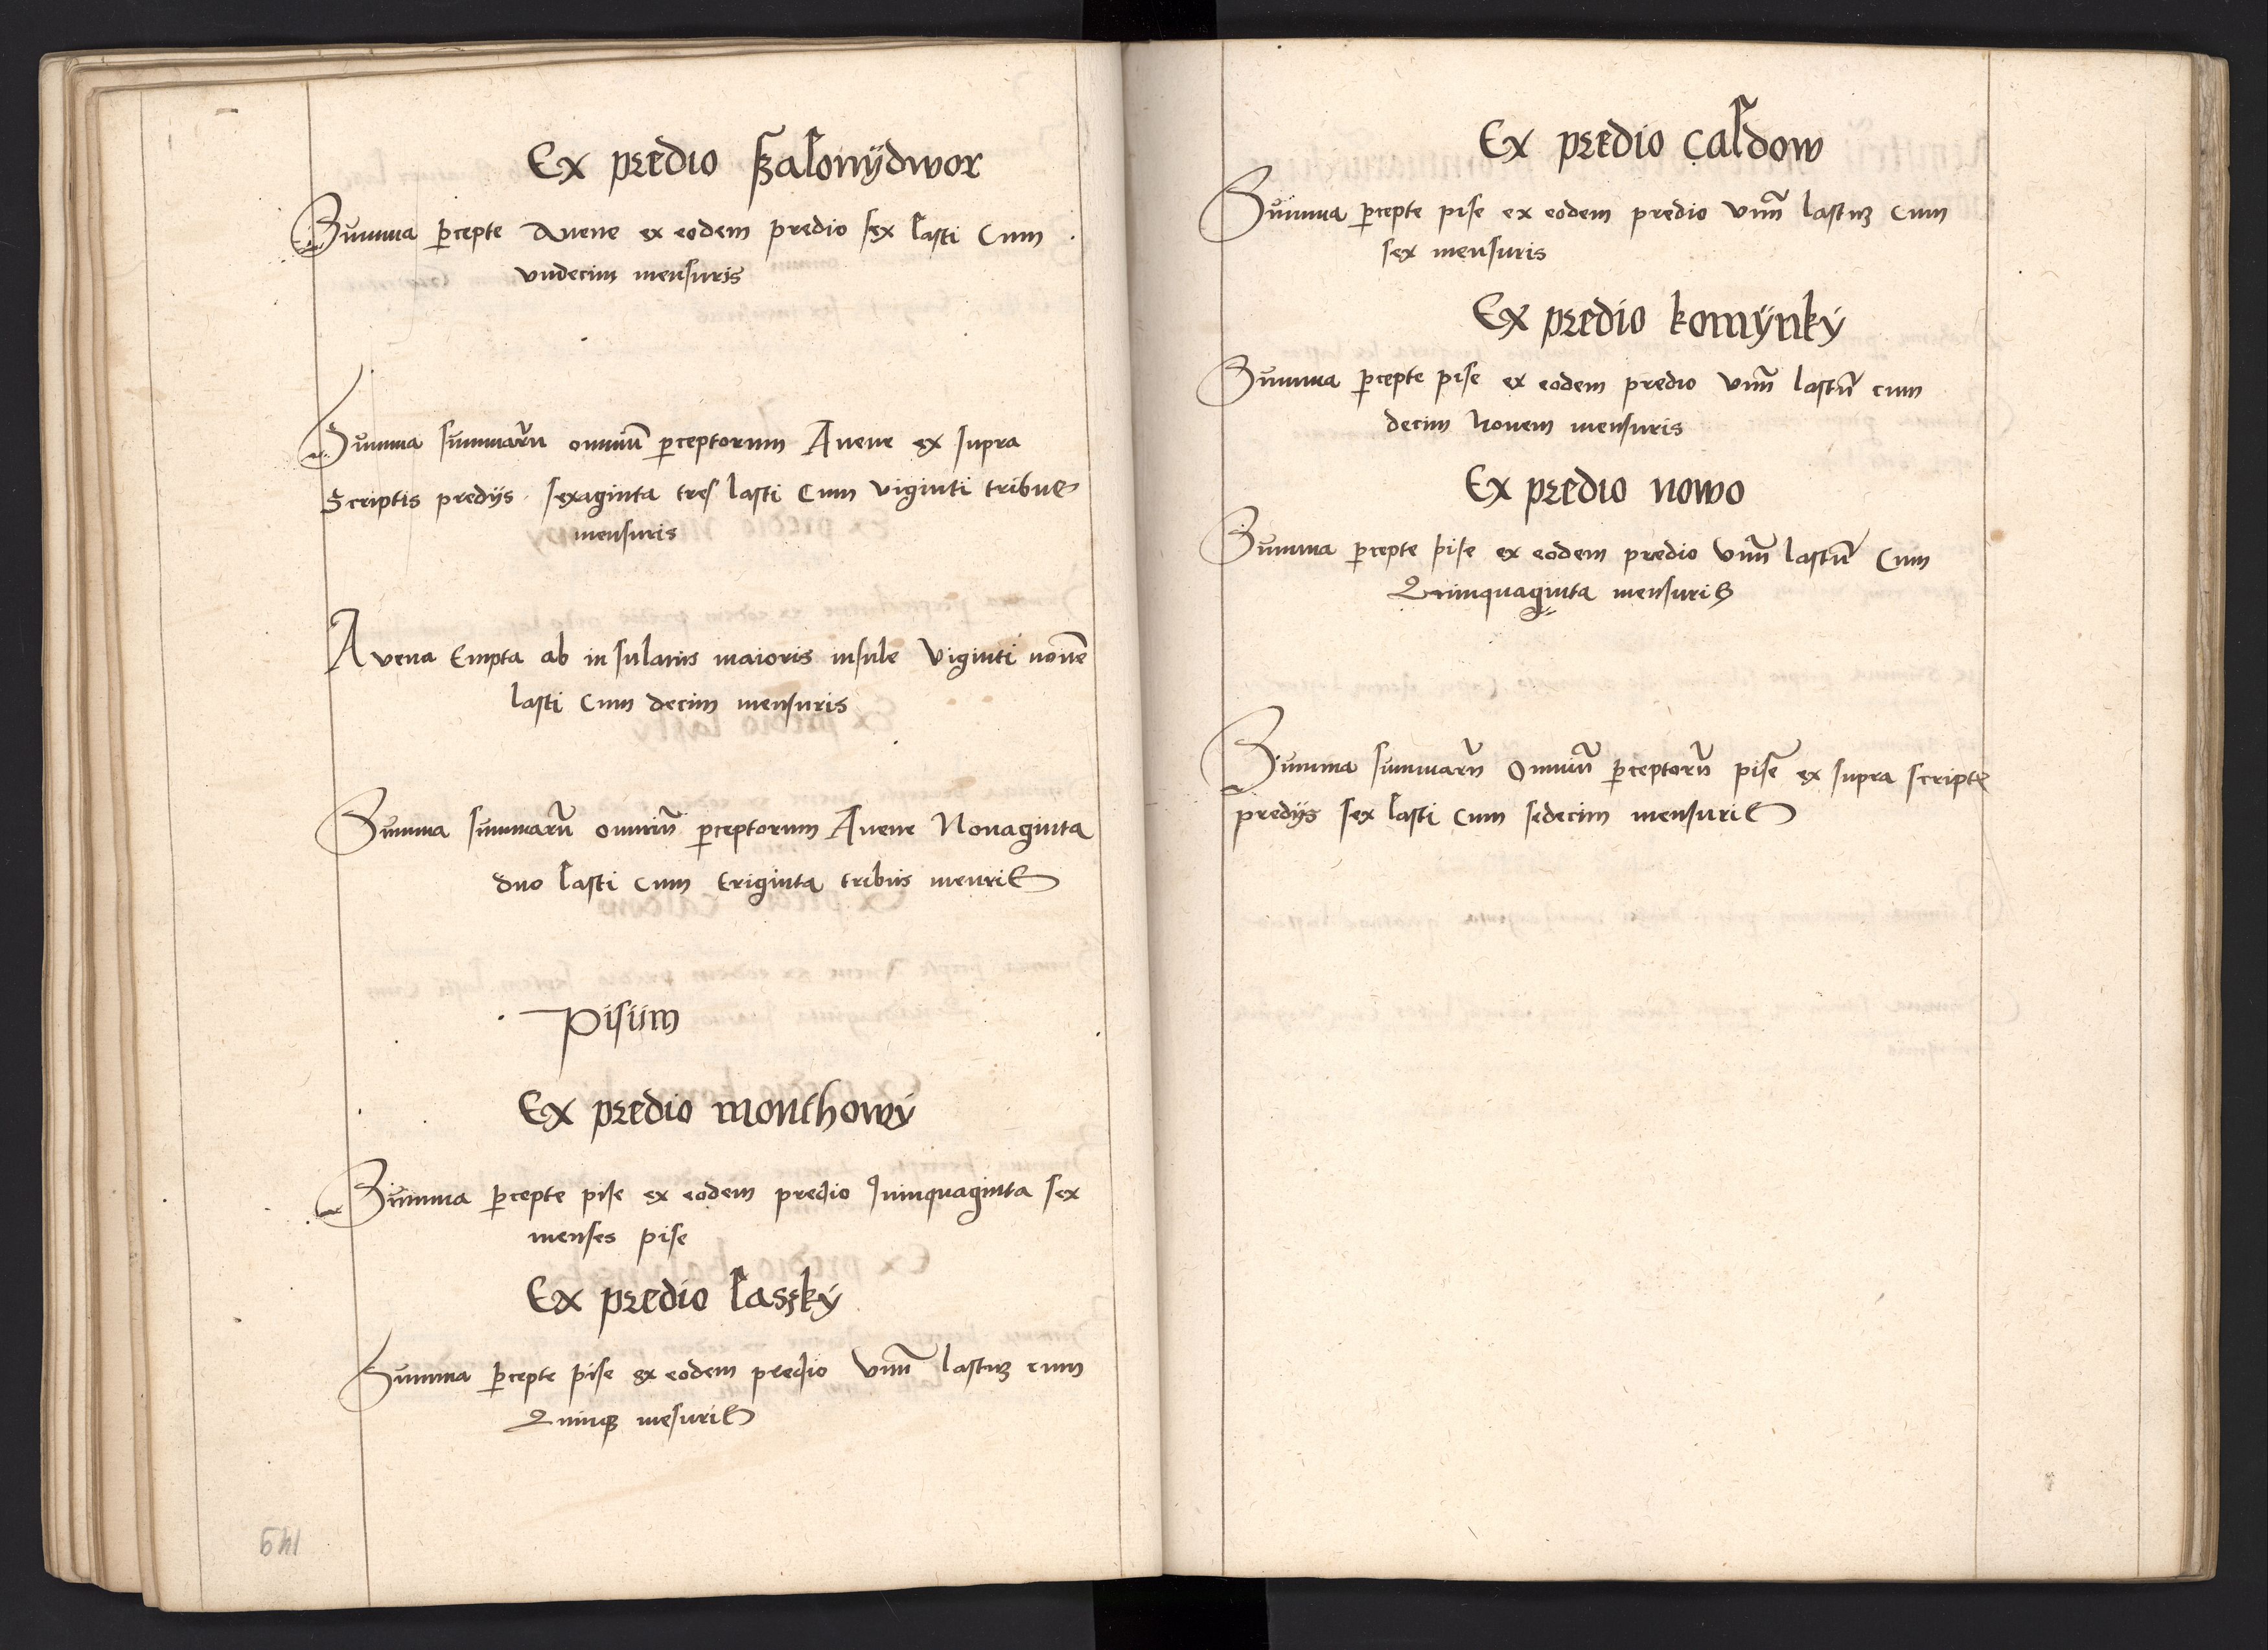 Ex predio szalonÿdwor
Summa p̱cepte Avene ex eodem predio sex lasti Cum
vndecim mensuris
Summa summarū omniū p̱ceptorum Avene ex supra
Scriptis predijs sexaginta tres lasti Cum viginti tribus
mensuris
Avena Empta ab insulanis maioris insule Viginti nouē
lasti Cum decim mensuris
Summa summarū omniū p̱ceptorum Avene Nonaginta
duo lasti Cum triginta tribus menris
Pisum
Ex predio monthowÿ
Summa p̱cepte pise ex eodem predio quinquaginta sex
menses pise
Ex predio lasskÿ
Summa p̱cepte pise ex eodem predio Vnū lastuʒ cum
Quinqʒ mesuris
149
Ex predio caldow
Summa p̱cepte pise ex eodem predio Vnū lastuʒ Cum
sex mensuris
Ex predio komÿnkÿ
Summa p̱cepte pise ex eodem predio Vnū lastū cum
decim Nouem mensuris
Ex predio nowo
Summa p̱cepte pise ex eodem predio Vnū lastū Cum
Quinquaginta mensuris
Summa summarū Omniū p̱ceptorū pise ex supra scriptꝭ
predijs sex lasti Cum sedecim mensuris